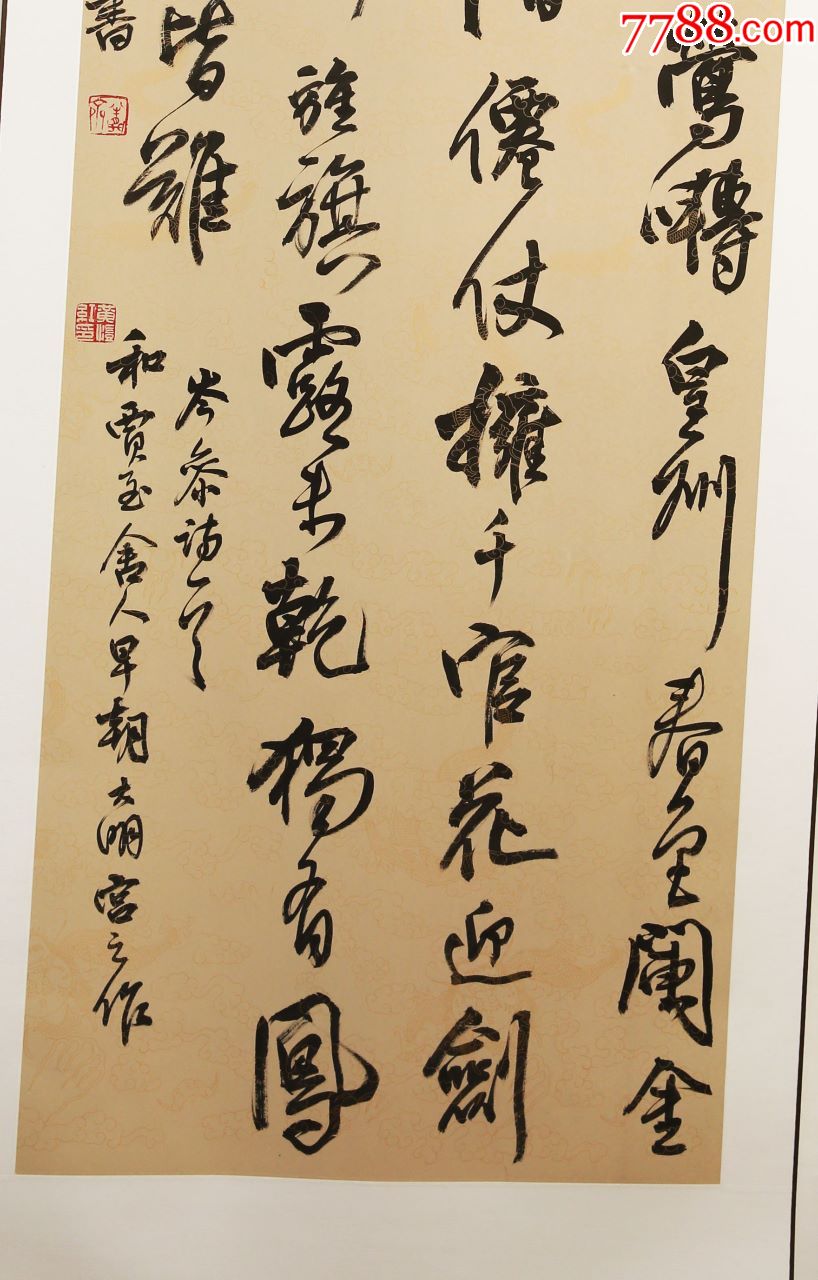 7788.com
鶯囀皇州春色闌金
僊仗擁千官花迎劍
旌旗露未乾獨有鳳
皆難
岑參詩一首
和賈至舍人早朝大明宮之作
書